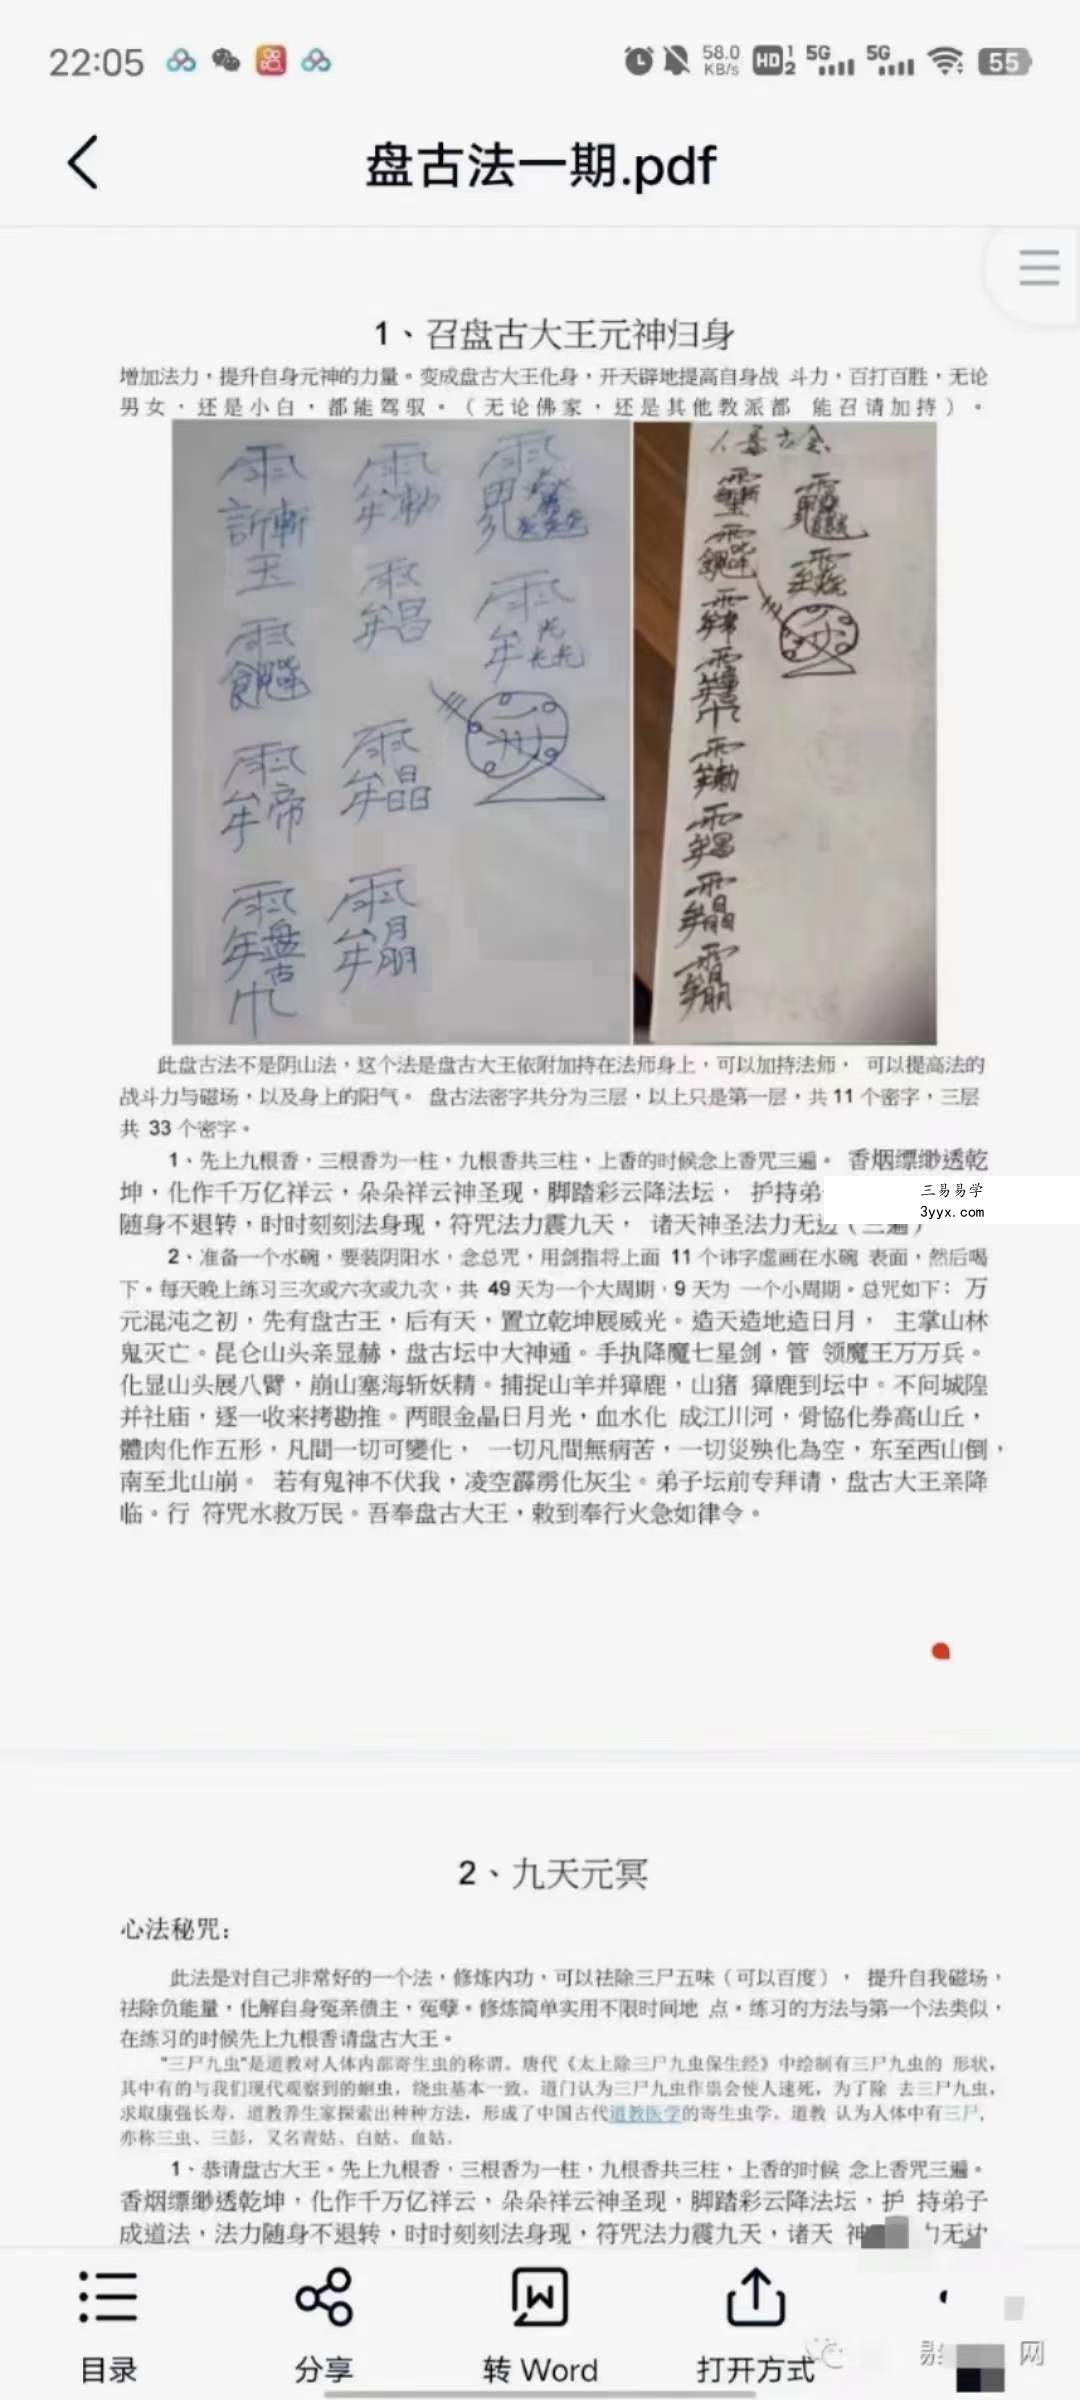 22:05
58.0 KB/s HD 1 2 5G 5G 55
盘古法一期.pdf
1、召盘古大王元神归身
增加法力，提升自身元神的力量。变成盘古大王化身，开天辟地提高自身战 斗力，百打百胜，无论
男女，还是小白，都能驾驭。（无论佛家，还是其他教派都 能召请加持）。
此盘古法不是阴山法，这个法是盘古大王依附加持在法师身上，可以加持法师， 可以提高法的
战斗力与磁场，以及身上的阳气。 盘古法密字共分为三层，以上只是第一层，共 11 个密字，三层
共 33 个密字。
1、先上九根香，三根香为一柱，九根香共三柱，上香的时候念上香咒三遍。 香烟缥缈透乾
坤，化作千万亿祥云，朵朵祥云神圣现，脚踏彩云降法坛， 护持弟
三易易学
3yyx.com
随身不退转，时时刻刻法身现，符咒法力震九天， 诸天神圣法力无边（三遍）
2、准备一个水碗，要装阴阳水，念总咒，用剑指将上面 11 个讳字虚画在水碗 表面，然后喝
下。每天晚上练习三次或六次或九次，共 49 天为一个大周期，9 天为 一个小周期。总咒如下：万
元混沌之初，先有盘古王，后有天，置立乾坤展威光。造天造地造日月， 主掌山林
鬼灭亡。昆仑山头亲显赫，盘古坛中大神通。手执降魔七星剑，管 领魔王万万兵。
化显山头展八臂，崩山塞海斩妖精。捕捉山羊并獐鹿，山猪 獐鹿到坛中。不问城隍
并社庙，逐一收来拷勘推。两眼金晶日月光，血水化 成江川河，骨協化券高山丘，
體肉化作五形，凡間一切可變化， 一切凡間無病苦，一切災殃化為空，东至西山倒，
南至北山崩。 若有鬼神不伏我，凌空霹雳化灰尘。弟子坛前专拜请，盘古大王亲降
临。行 符咒水救万民。吾奉盘古大王，敕到奉行火急如律令。
2、九天元冥
心法秘咒：
此法是对自己非常好的一个法，修炼内功，可以祛除三尸五味（可以百度）， 提升自我磁场，
祛除负能量，化解自身冤亲债主，冤孽。修炼简单实用不限时间地 点。练习的方法与第一个法类似，
在练习的时候先上九根香请盘古大王。
"三尸九虫"是道教对人体内部寄生虫的称谓。唐代《太上除三尸九虫保生经》中绘制有三尸九虫的 形状，
其中有的与我们现代观察到的蛔虫，绕虫基本一致。道门认为三尸九虫作祟会使人速死，为了除 去三尸九虫，
求取康强长寿，道教养生家探索出种种方法，形成了中国古代道教医学的寄生虫学。道教 认为人体中有三尸，
亦称三虫、三彭，又名青姑、白姑、血姑。
1、恭请盘古大王。先上九根香，三根香为一柱，九根香共三柱，上香的时候 念上香咒三遍。
香烟缥缈透乾坤，化作千万亿祥云，朵朵祥云神圣现，脚踏彩云降法坛，护 持弟子
成道法，法力随身不退转，时时刻刻法身现，符咒法力震九天，诸天 神
目录
分享
转 Word
打开方式
网